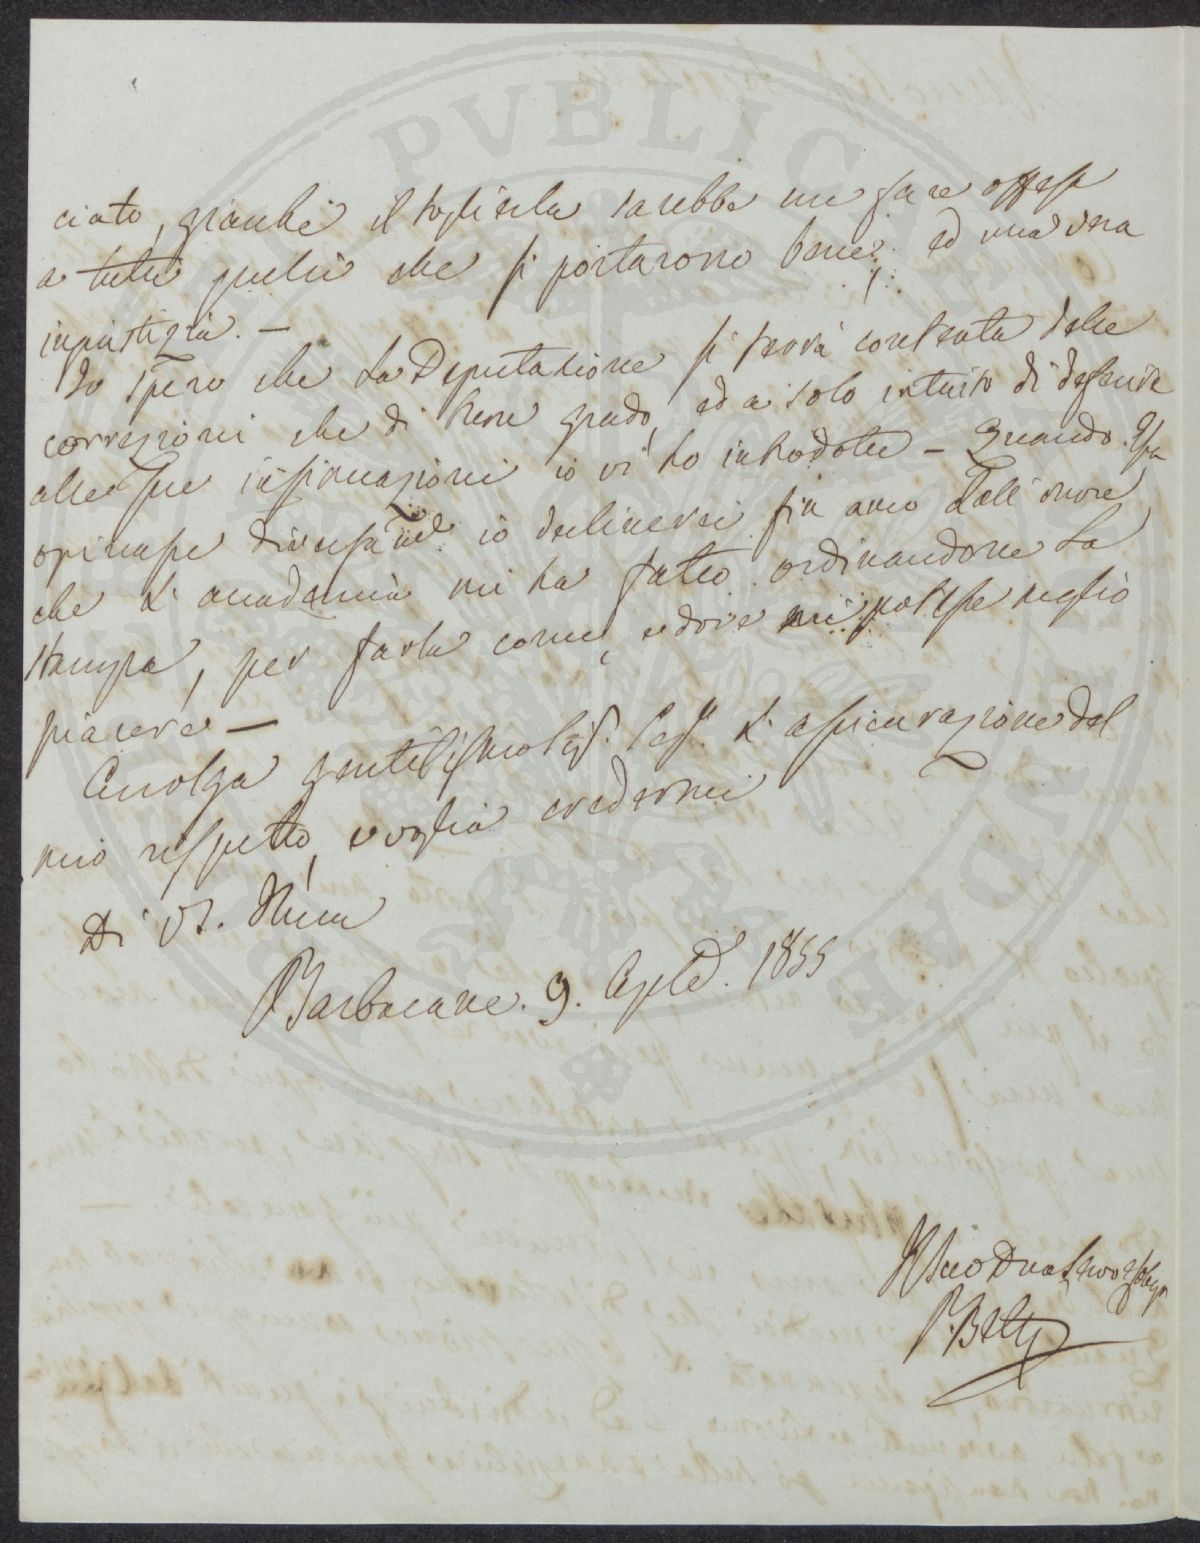 ciato, giacchè il toglierla sarebbe un fare offesa
a tutti quelli che si portarono bene, ed una vera
ingiustizia. —
Io spero che La Deputazione si terrà contenta delle
correzioni che di buon grado, ed a solo intuito di deferire
alle sue insinuazioni io vi ho introdotte — Quando Essa
opinasse diversamte io declinerei fin anco dall'onore
che L'accademia mi ha fatto ordinandone La
stampa, per farla come, e dove mi potesse meglio
piacere —
Accolga gentilissimo Sigr. L'assicurazione del
mio rispetto, e voglia credermi
Di VS. Illma
Barbacane. 9. 1855
Suo Devo Servo
P. Betti